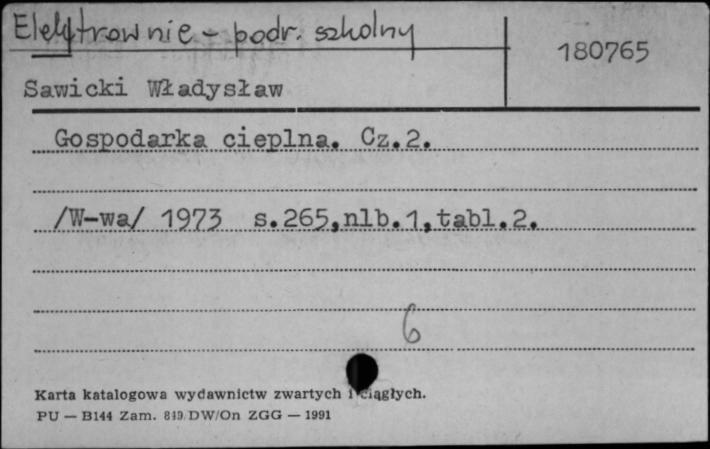 Elektrownie - podr. szkolny
180765
Sawicki Władysław
Gospodarka cieplna. Cz.2.
/W-wa/ 1973 s.265,nlb.1,tabl.2.
6
Karta katalogowa wydawnictw zwartych i ciągłych.
PU — B144 Zam. 849 DW/On ZGG — 1991